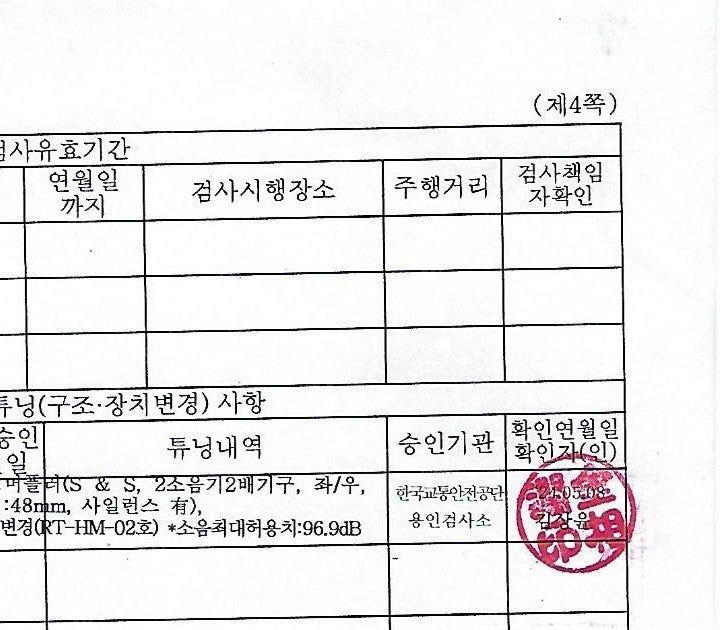 (제4쪽)
검사유효기간
연월일
까지
검사시행장소
주행거리
검사책임
자확인
튜닝(구조·장치변경) 사항
승인
일
튜닝내역
승인기관
확인연월일
확인자(인)
머플러(S & S, 2소음기2배기구, 좌/우,
:48mm, 사일런스 有),
변경(RT-HM-02호) *소음최대허용치:96.9dB
한국교통안전공단
용인검사소
24.05.08